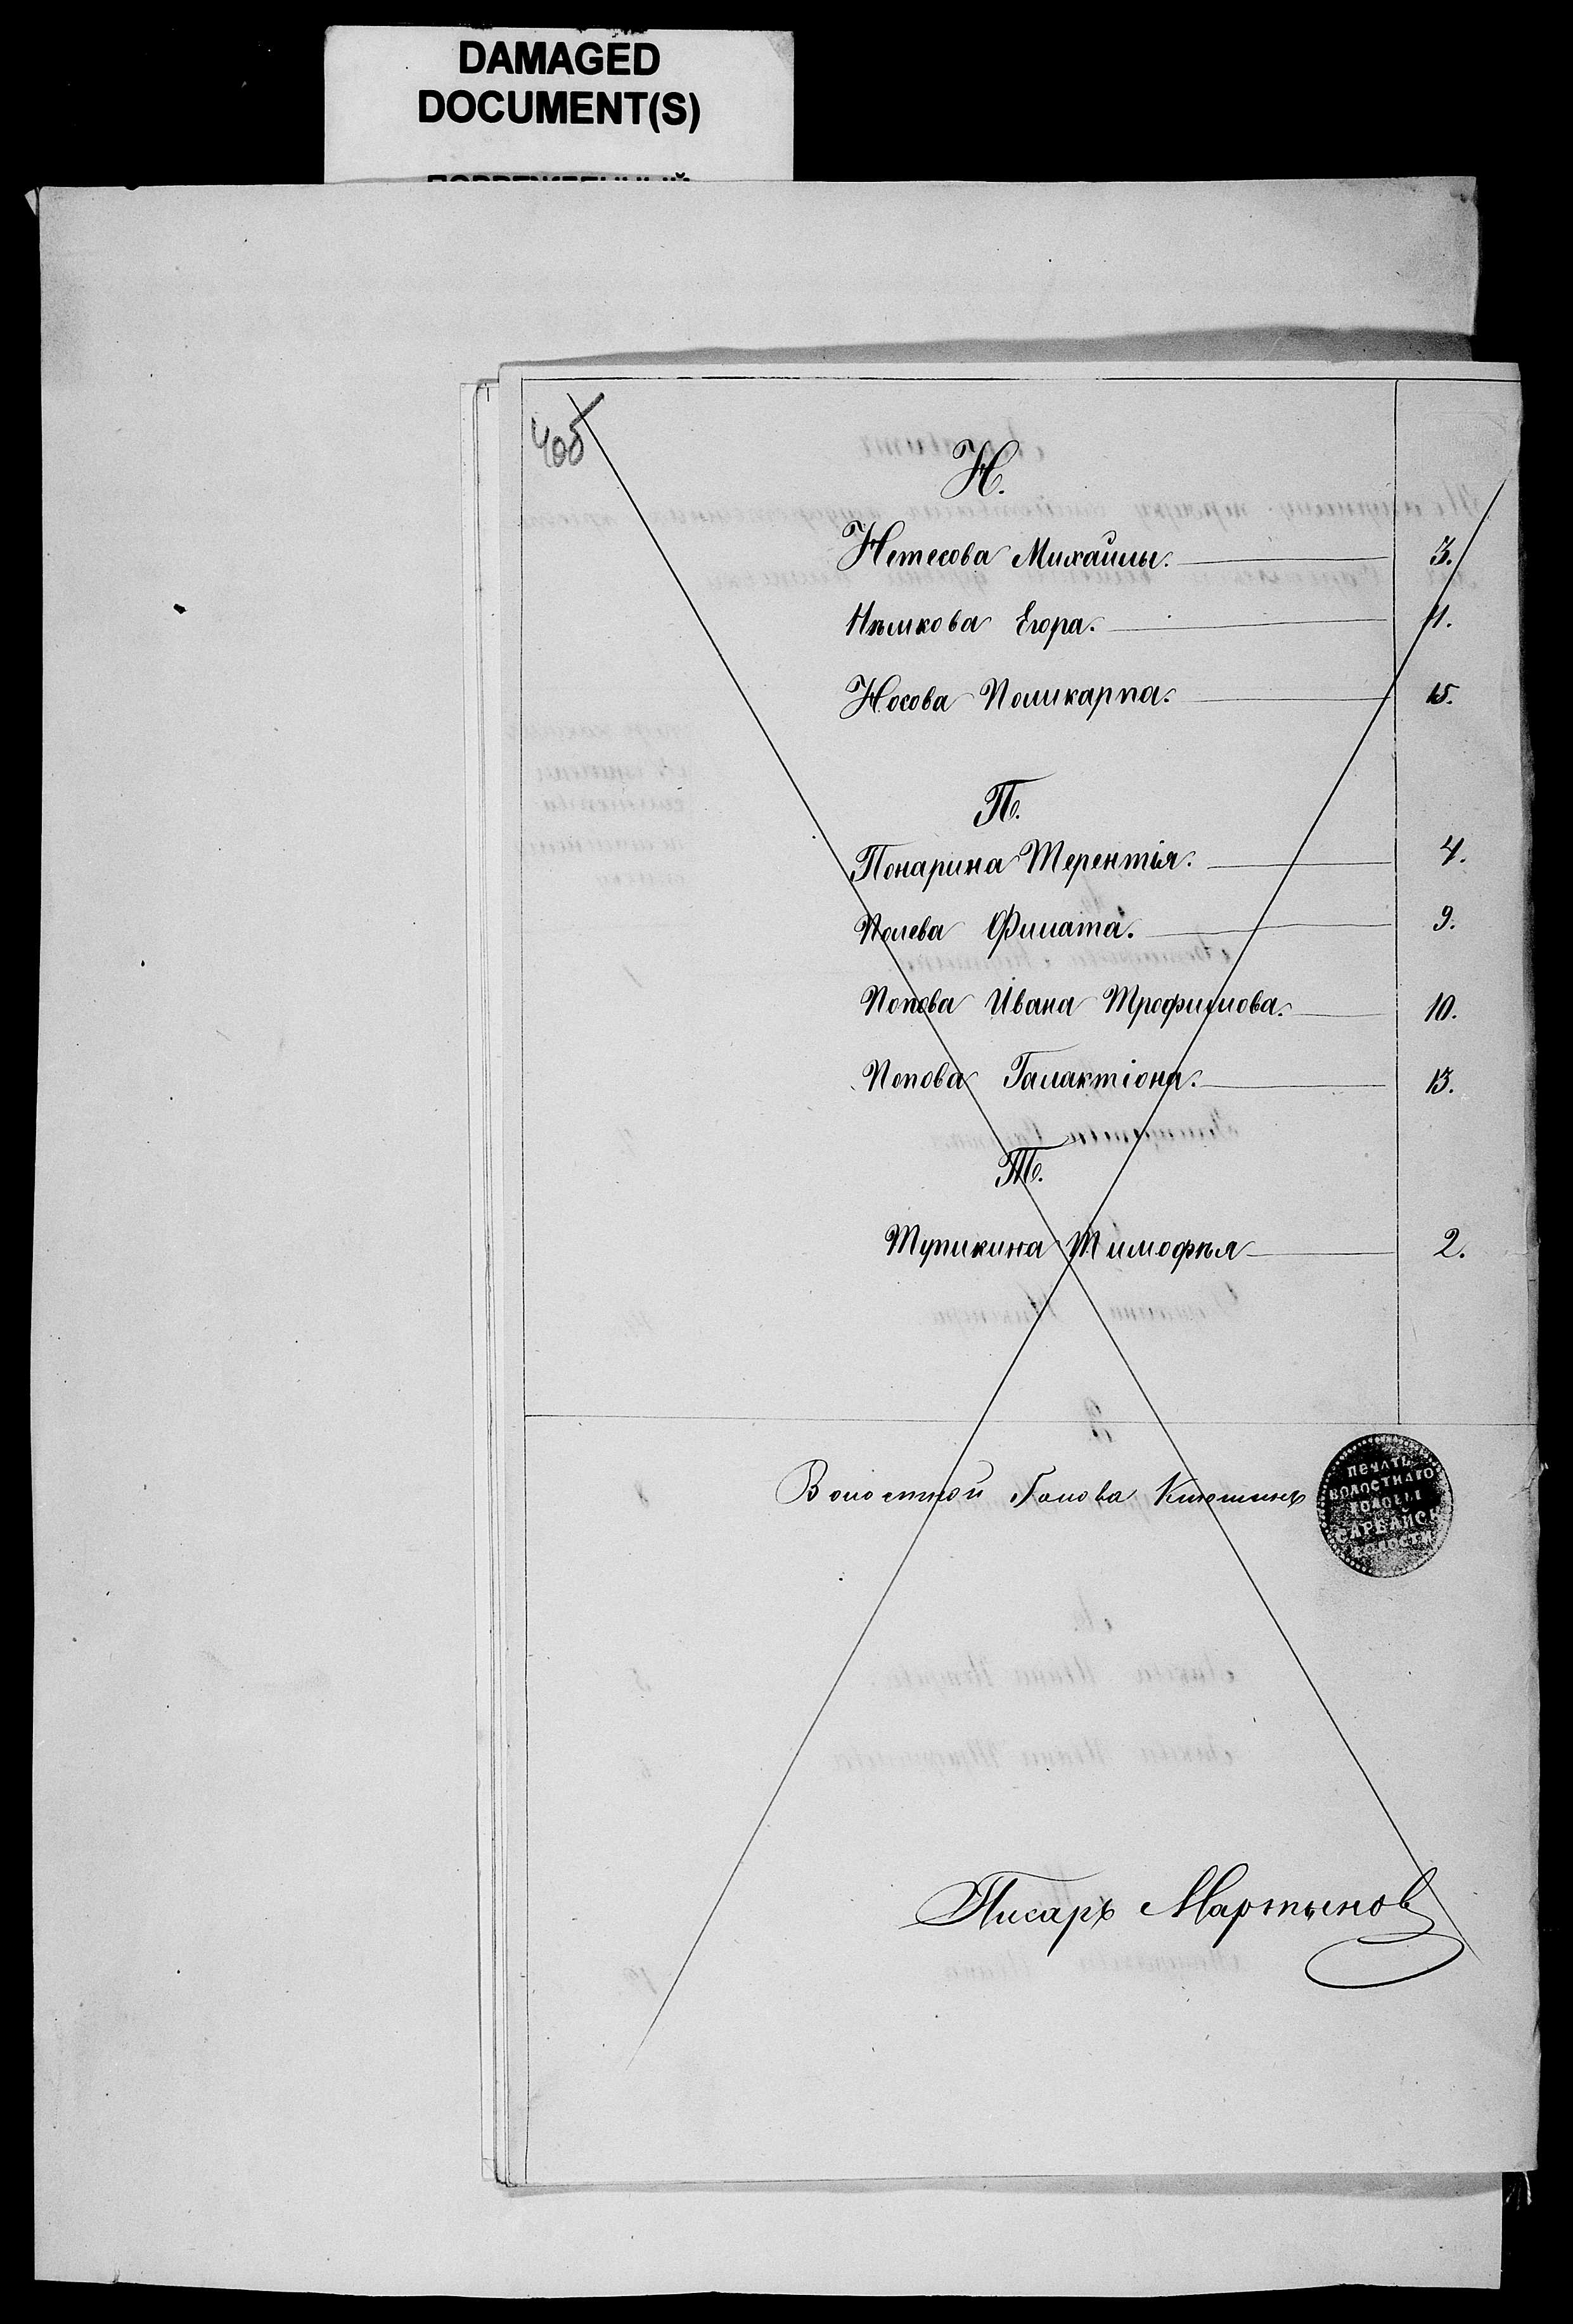 DAMAGED
DOCUMENT(S)
Н.
Нетесова Михаилы. 3.
Нѣмкова Егора. 11.
Носова Поликарпа. 15.
П.
Понарина Терентія. 4.
Полева Филата. 9.
Попова Ивана Трофимова. 10.
Попова Галактіона. 13.
Т.
Тупикина Тимофѣя 2.
Волостной Голова Клюшинъ
ПЕЧАТЬ
ВОЛОСТНАГО
ГОЛОВЫ
САРБАЙСК
ВОЛОСТИ
Писарь Мартынов